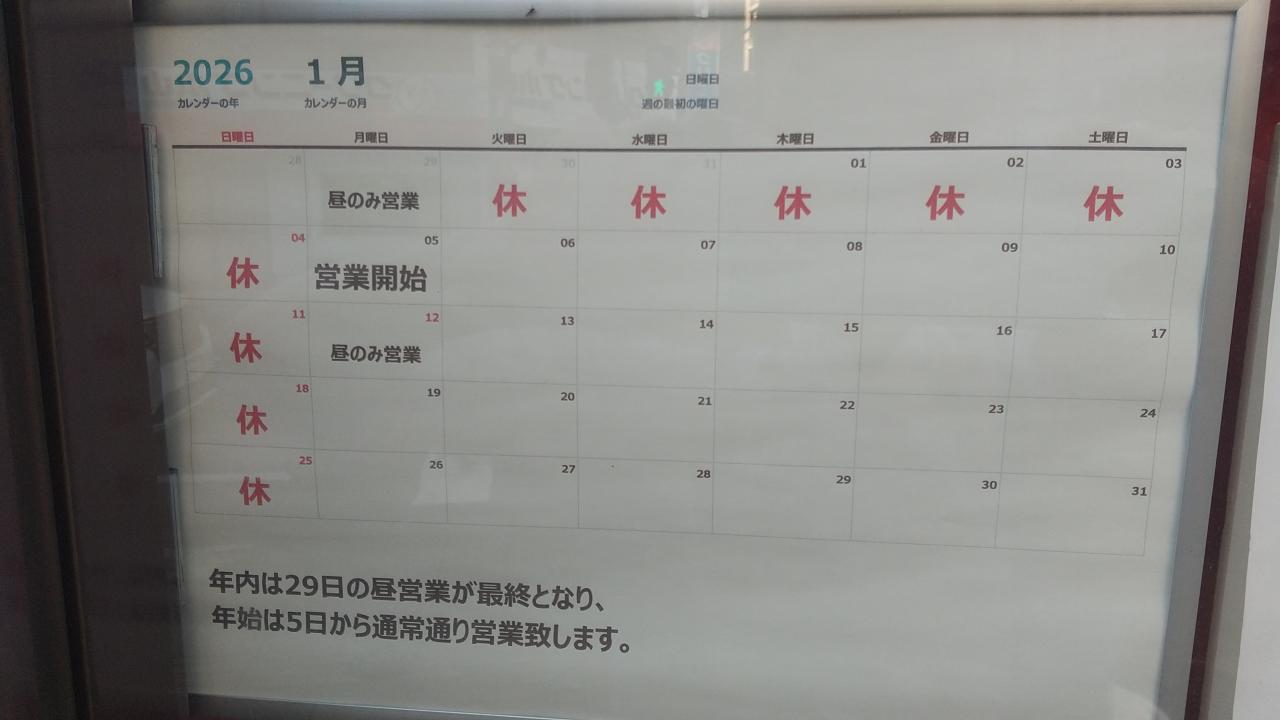 2026 1 月
カレンダーの年 カレンダーの月
日曜日
週の最初の曜日
日曜日 月曜日 火曜日 水曜日 木曜日 金曜日 土曜日
28 29 30 31 01 02 03
昼のみ営業 休 休 休 休 休
04 05 06 07 08 09 10
休 営業開始
11 12 13 14 15 16 17
休 昼のみ営業
18 19 20 21 22 23 24
休
25 26 27 28 29 30 31
休
年内は29日の昼営業が最終となり、
年始は5日から通常通り営業致します。